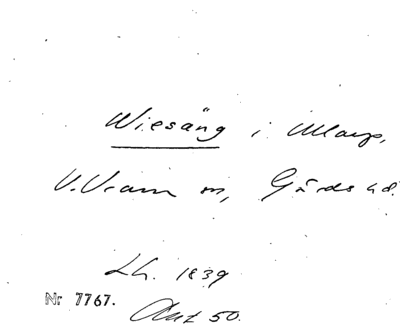 Wiesäng i Maarp,
V. Vram sn, Gärds hd.
Lh. 1839
Nr 7767.
Akt 50.